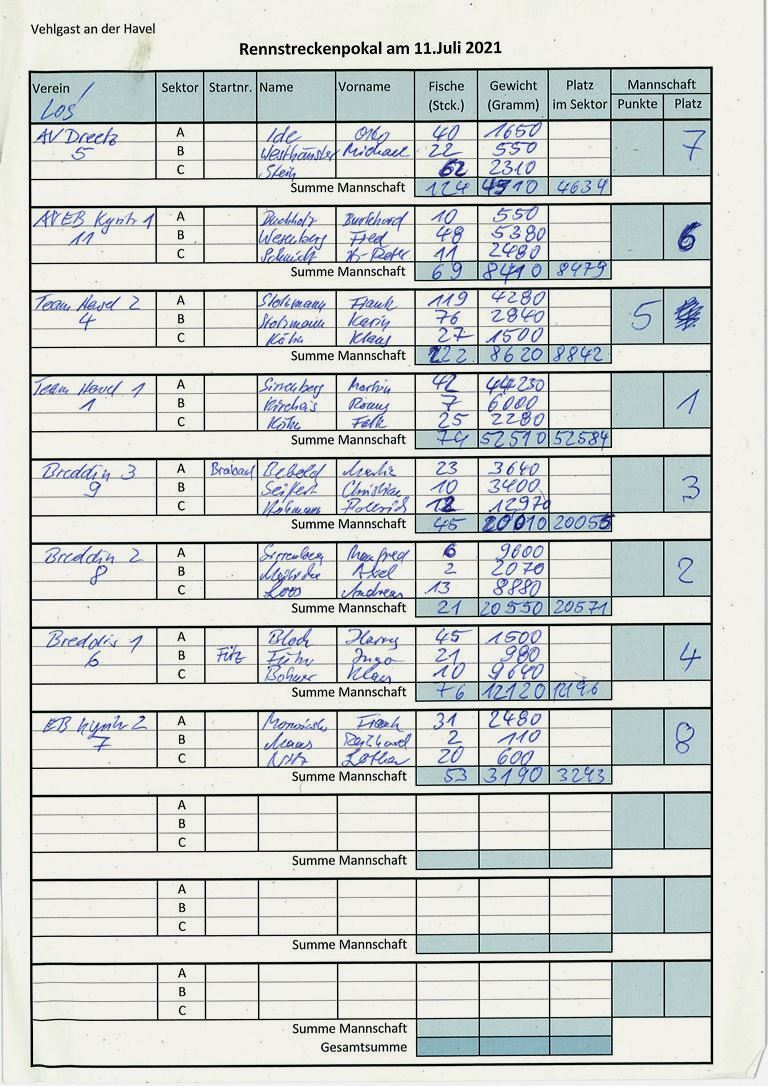 Vehlgast an der Havel
Rennstreckenpokal am 11.Juli 2021
Verein Sektor Startnr. Name Vorname Fische (Stck.) Gewicht (Gramm) Platz im Sektor Mannschaft Punkte Platz
Los
AV Dreetz A Ide Otto 40 1650 7
5 B Westhäuser Michael 22 550
C Stein 62 2310
Summe Mannschaft 124 4510 4634
AVEB Kyritz 1 A Buchholz Burkhard 10 550 6
11 B Wesenberg Fred 48 5380
C Schmidt 11 2480
Summe Mannschaft 69 8410 8479
Team Havel 2 A Stolzmann Frank 119 4280 5
4 B Stolzmann Karin 76 2840
C Kühn Klaus 27 1500
Summe Mannschaft 222 8620 8842
Team Havel 1 A Sirrenberg Martin 42 44230 1
1 B Ronny 7 6000
C Falk 25 2280
Summe Mannschaft 74 52510 52584
Breddin 3 A 23 3640 3
9 B Seifert Christian 10 3400
C 12 12970
Summe Mannschaft 45 20010 20055
Breddin 2 A Sirrenberg Manfred 6 9600 2
8 B Axel 2 2070
C Loos Andreas 13 8880
Summe Mannschaft 21 20550 20571
Breddin 1 A Bloch Harry 45 1500 4
6 B Ingo 21 980
C Klaus 10 9640
Summe Mannschaft 76 12120 12196
EB Kyritz 2 A Frank 31 2480 8
7 B Maas Reinhard 2 110
C Lothar 20 600
Summe Mannschaft 53 3190 3243
A
B
C
Summe Mannschaft
A
B
C
Summe Mannschaft
A
B
C
Summe Mannschaft
Gesamtsumme